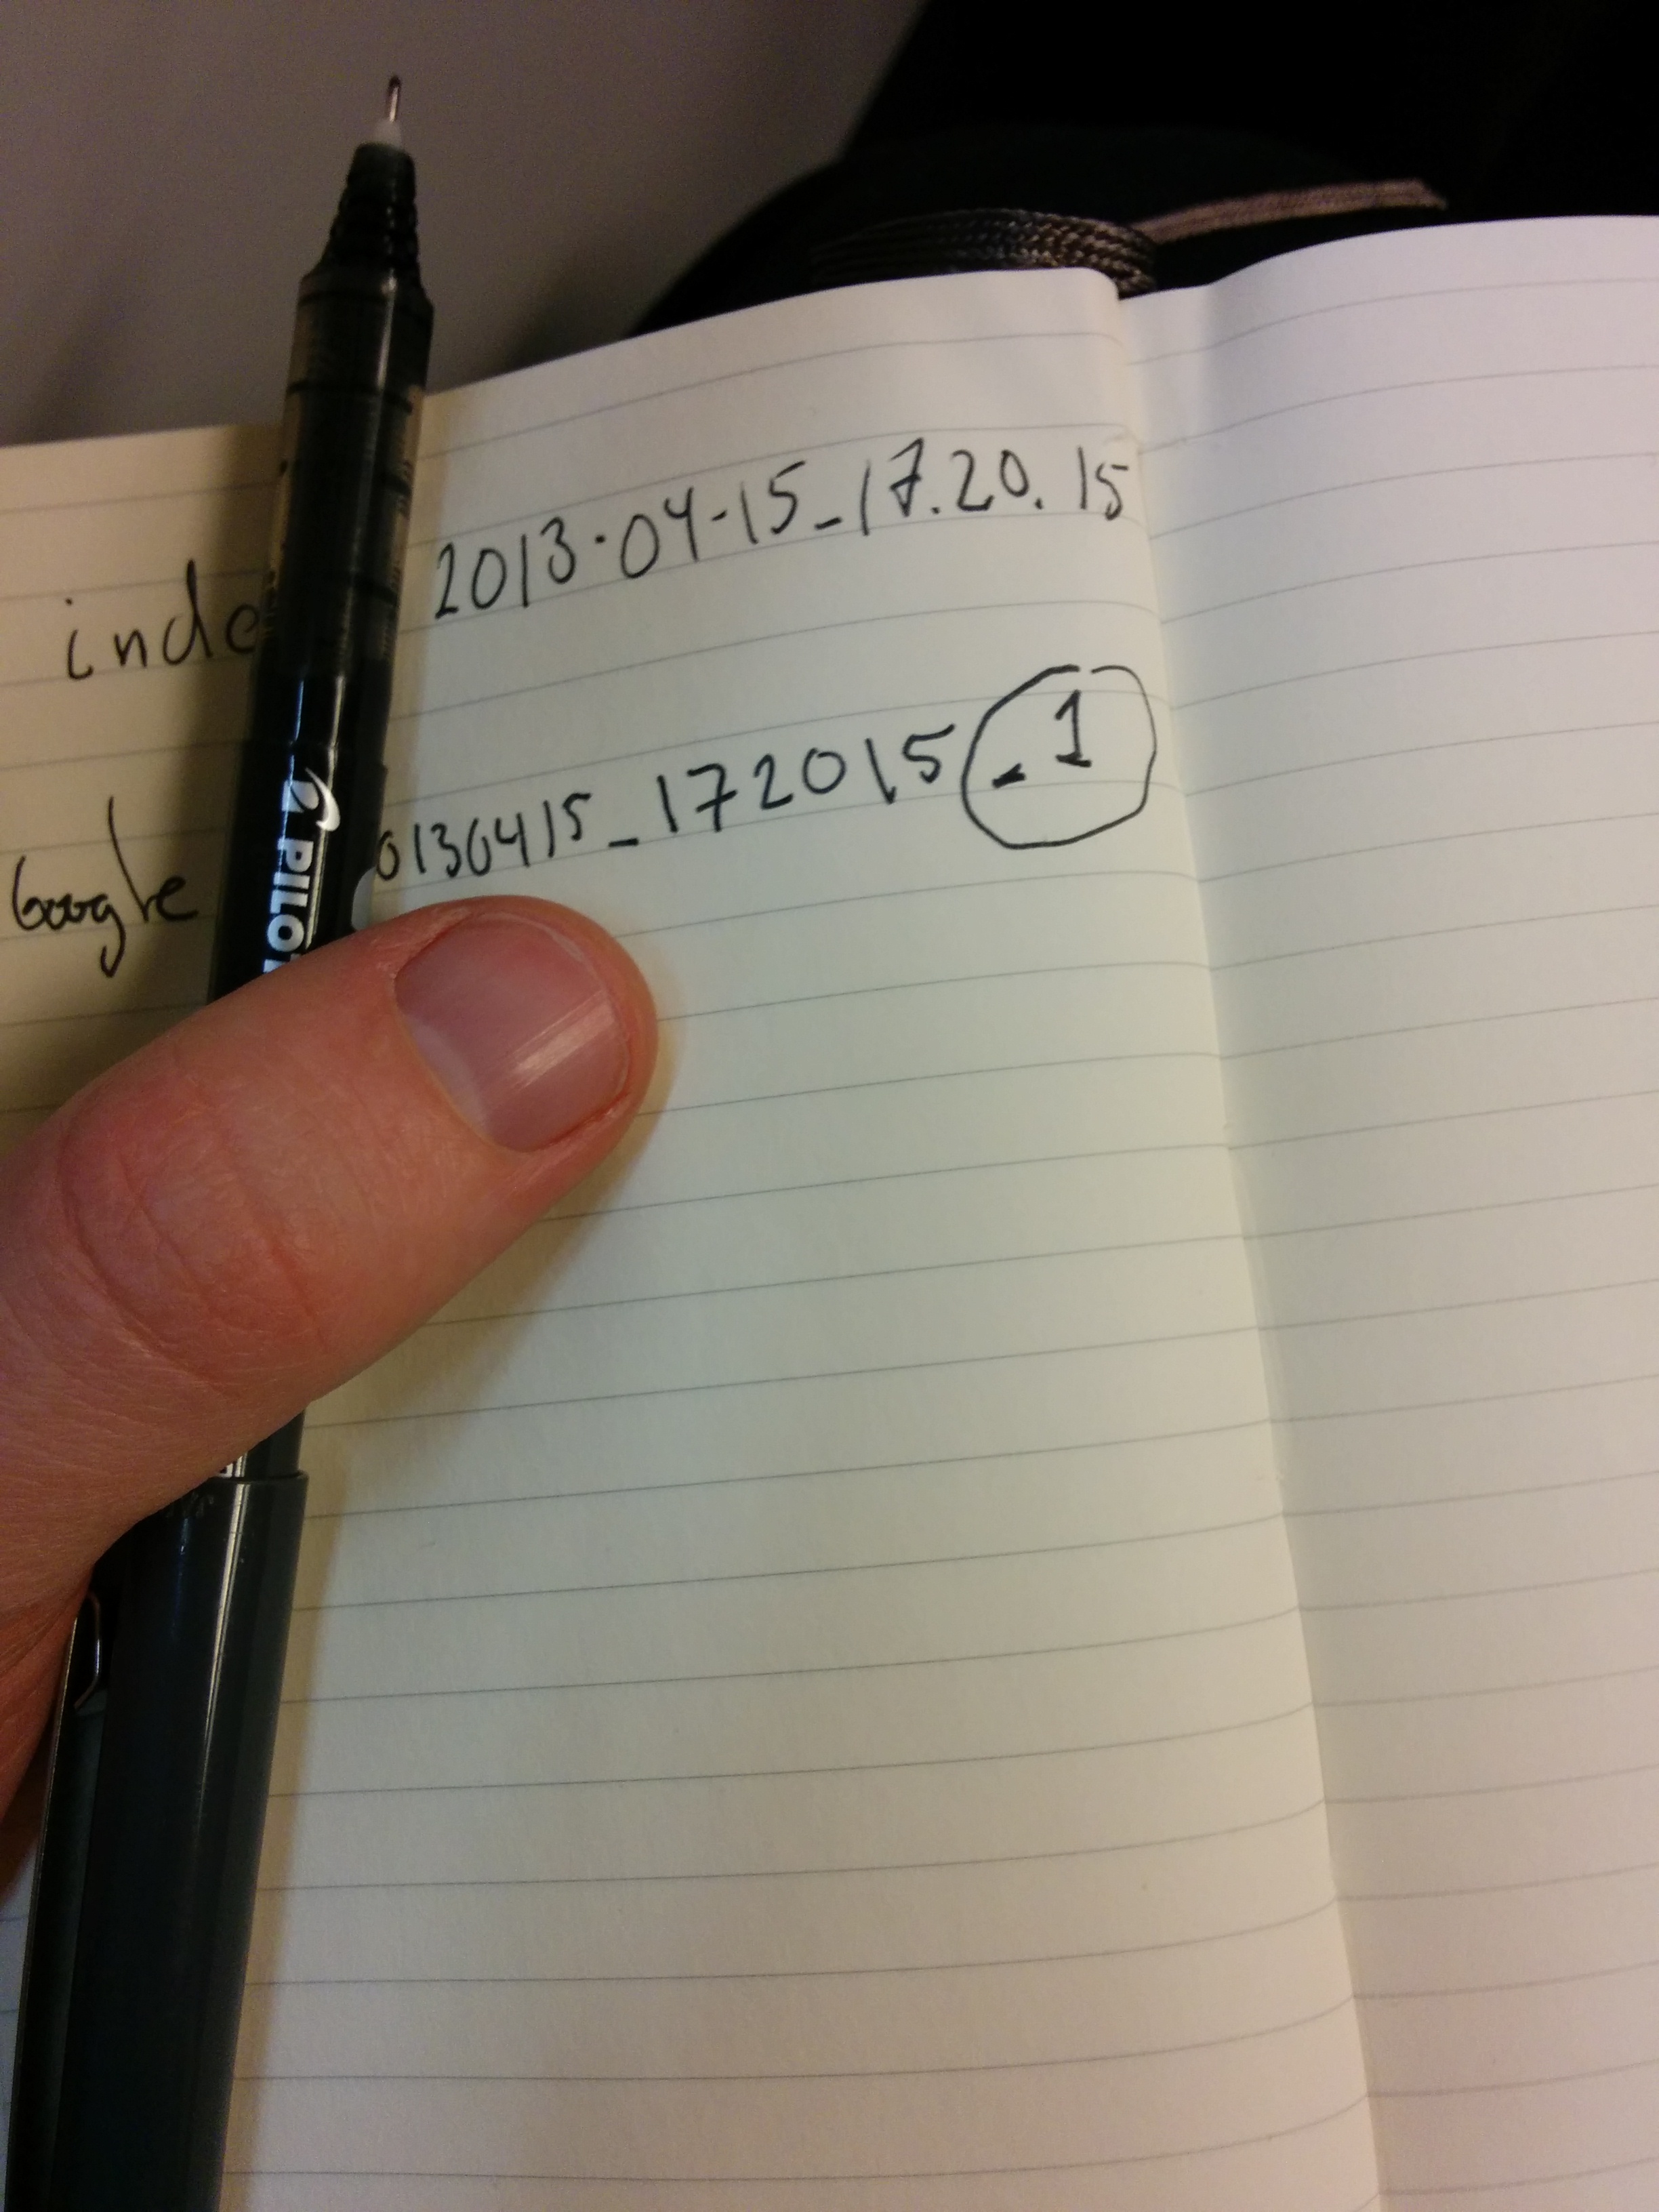 inde 2013-04-15_17.20.15
Google 0130415_172015_1
PILOT